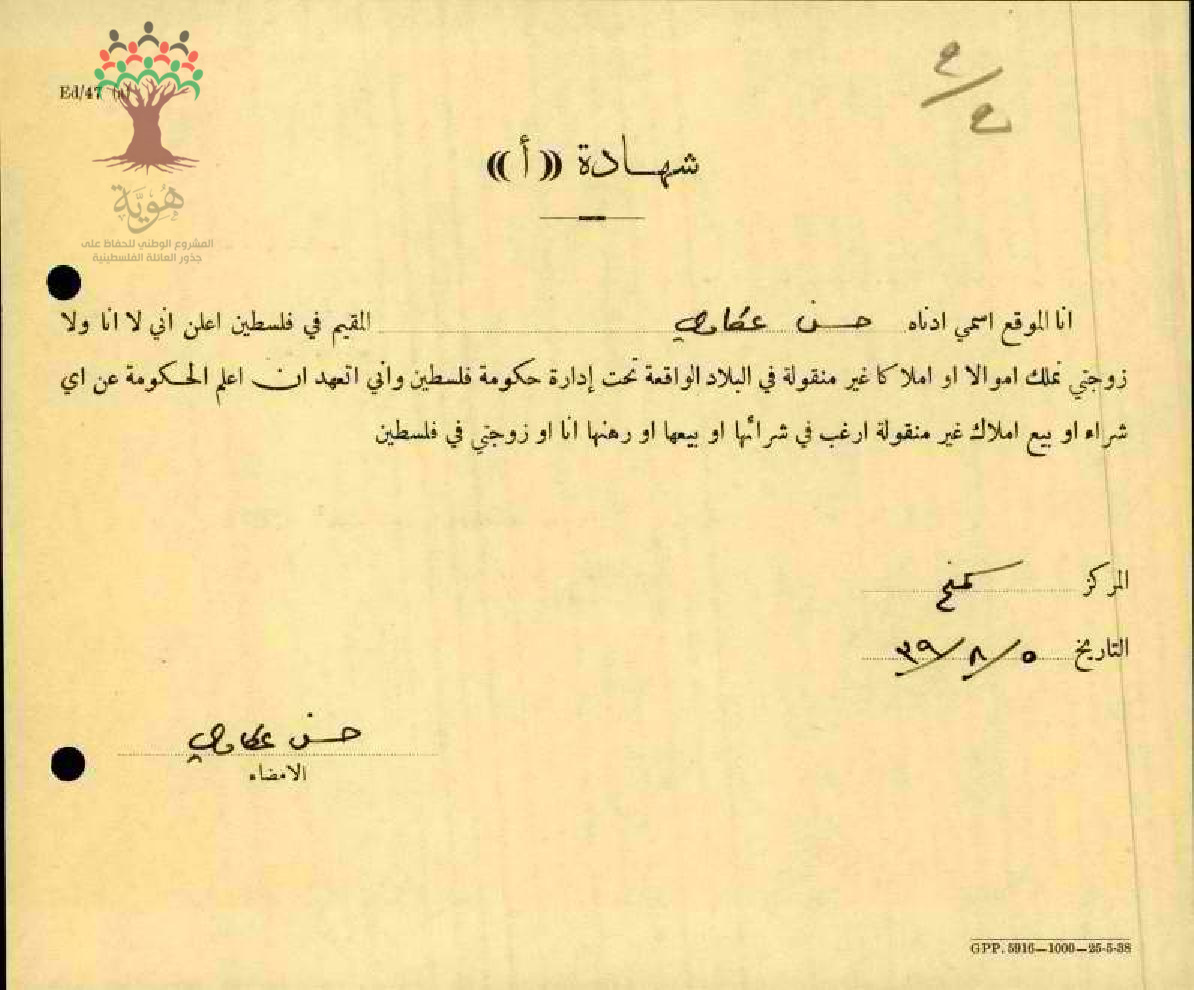 Ed/47
هُوِيَّة
المشروع الوطني للحفاظ على
جذور العائلة الفلسطينية
شهـادة ((أ))
انا الموقع اسمي ادناه حسن عطاوي المقيم في فلسطين اعلن اني لا انا ولا
زوجتي نملك اموالا او املاكا غير منقولة في البلاد الواقعة تحت إدارة حكومة فلسطين واني اتعهد ان اعلم الحكومة عن اي
شراء او بيع املاك غير منقولة ارغب في شرائها او بيعها او رهنها انا او زوجتي في فلسطين
المركز
التاريخ ٥/٨/٣٩
حسن عطاوي
الامضاء
GPP. 5916—1000—25-5-38